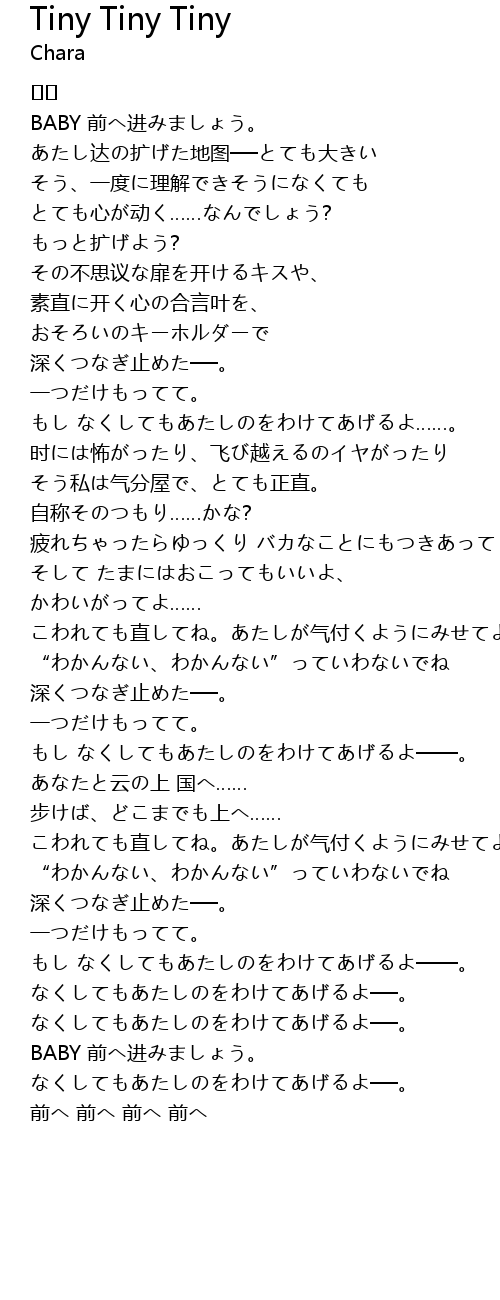 Tiny Tiny Tiny
Chara
BABY 前へ进みましょう。
あたし达の扩げた地图──とても大きい
そう、一度に理解できそうになくても
とても心が动く……なんでしょう?
もっと扩げよう?
その不思议な扉を开けるキスや、
素直に开く心の合言叶を、
おそろいのキーホルダーで
深くつなぎ止めた──。
一つだけもってて。
もし なくしてもあたしのをわけてあげるよ……。
时には怖がったり、飞び越えるのイヤがったり
そう私は气分屋で、とても正直。
自称そのつもり……かな?
疲れちゃったらゆっくり バカなことにもつきあって
そして たまにはおこってもいいよ、
かわいがってよ……
こわれても直してね。あたしが气付くようにみせてよ
“わかんない、わかんない”っていわないでね
深くつなぎ止めた──。
一つだけもってて。
もし なくしてもあたしのをわけてあげるよ───。
あなたと云の上 国へ……
歩けば、どこまでも上へ……
こわれても直してね。あたしが气付くようにみせてよ
“わかんない、わかんない”っていわないでね
深くつなぎ止めた──。
一つだけもってて。
もし なくしてもあたしのをわけてあげるよ───。
なくしてもあたしのをわけてあげるよ──。
なくしてもあたしのをわけてあげるよ──。
BABY 前へ进みましょう。
なくしてもあたしのをわけてあげるよ──。
前へ 前へ 前へ 前へ